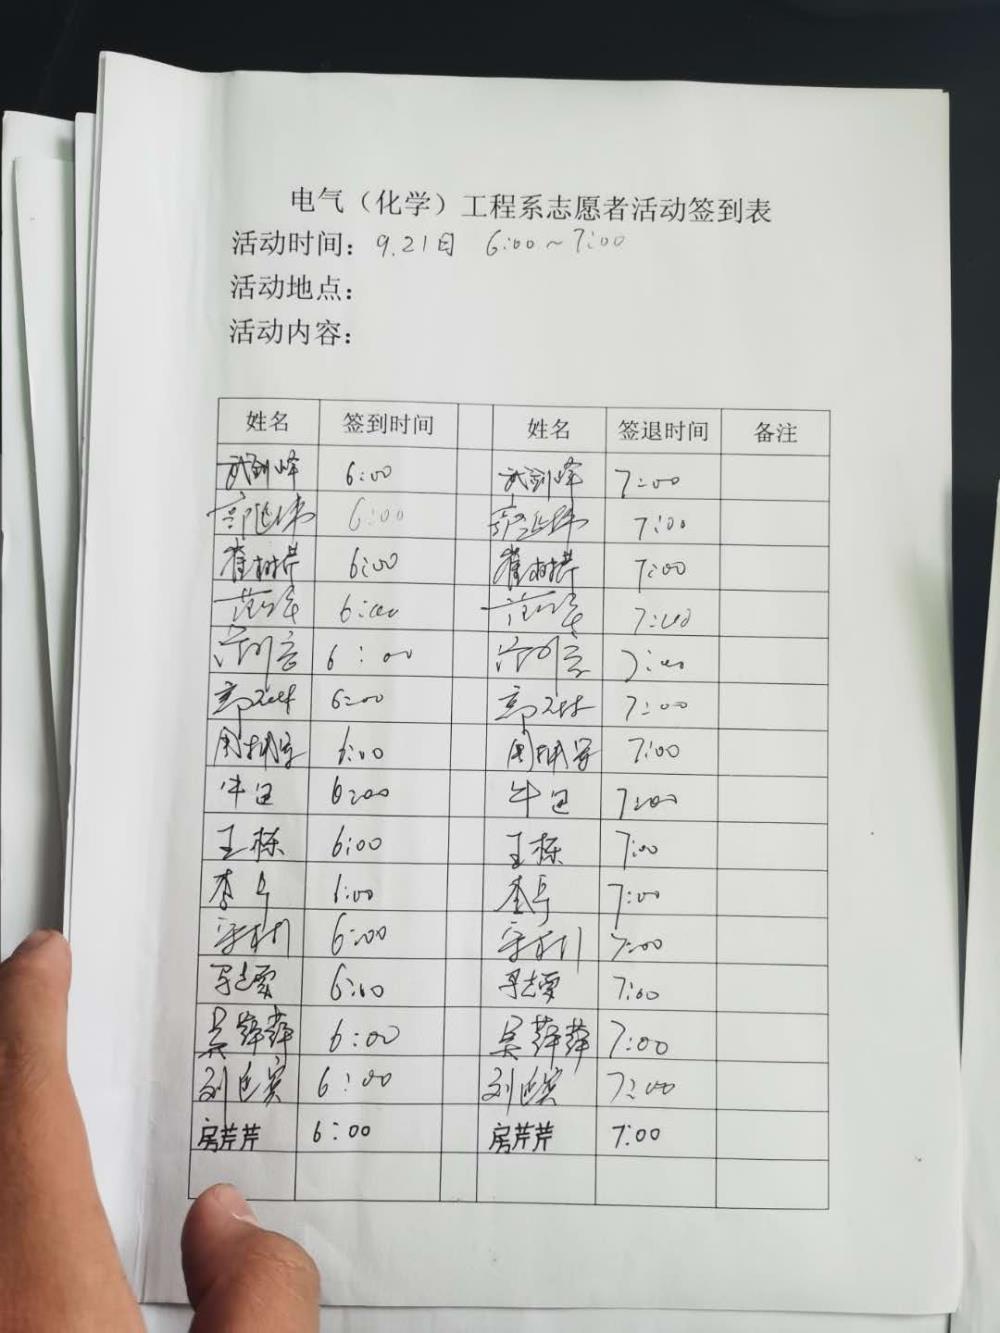 电气（化学）工程系志愿者活动签到表
活动时间：9.21日 6:00~7:00
活动地点：
活动内容：
姓名 签到时间 姓名 签退时间 备注
武剑峰 6:00 武剑峰 7:00
6:00 7:00
崔树芹 6:00 崔树芹 7:00
6:00 7:00
6:00 7:00
6:00 7:00
6:00 7:00
牛 6:00 牛 7:00
王栋 6:00 王栋 7:00
李 6:00 李 7:00
6:00 7:00
6:00 7:00
吴萍萍 6:00 吴萍萍 7:00
刘 宾 6:00 刘 宾 7:00
房芹芹 6:00 房芹芹 7:00